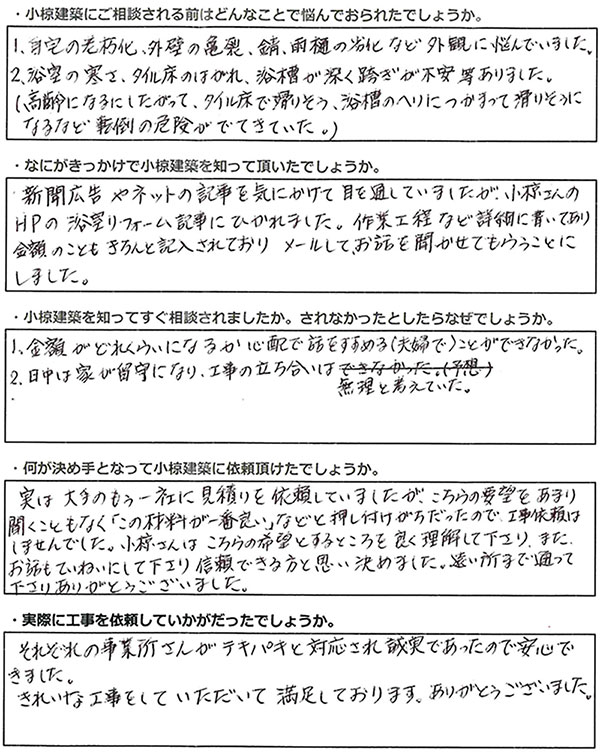 ・小椋建築にご相談される前はどんなことで悩んでおられたでしょうか。
1、自宅の老朽化、外壁の亀裂、錆、雨樋の劣化など外観に悩んでいました。
2、浴室の寒さ、タイル床のはがれ、浴槽が深く跨ぎが不安等ありました。
(高齢になるにしたがって、タイル床で滑りそう、浴槽のヘリにつかまって滑りそうに
なるなど転倒の危険がでてきていた。)
・なにがきっかけで小椋建築を知って頂いたでしょうか。
新聞広告やネットの記事を気にかけて目を通していましたが、小椋さんの
HPの浴室リフォーム記事にひかれました。作業工程など詳細に書いてあり
金額のこともきちんと記入されており メールして、お話を聞かせてもらうことに
しました。
・小椋建築を知ってすぐ相談されましたか。されなかったとしたらなぜでしょうか。
1、金額がどれくらいになるか心配で話をすすめる(夫婦で)ことができなかった。
2、日中は家が留守になり、工事の立ち合いはできなかった。(予想)
無理と考えていた。
・何が決め手となって小椋建築に依頼頂けたでしょうか。
実は大手のもう一社に見積りを依頼していましたが、こちらの要望をあまり
聞くこともなく「この材料が一番良い」などと押し付けがちだったので、工事依頼は
しませんでした。小椋さんはこちらの希望とするところを良く理解して下さり、また、
お話もていねいにして下さり信頼できる方と思い決めました。遠い所まで通って
下さりありがとうございました。
・実際に工事を依頼していかがだったでしょうか。
それぞれの事業所さんがテキパキと対応され誠実であったので安心で
きました。
きれいな工事をしていただいて満足しております。ありがとうございました。